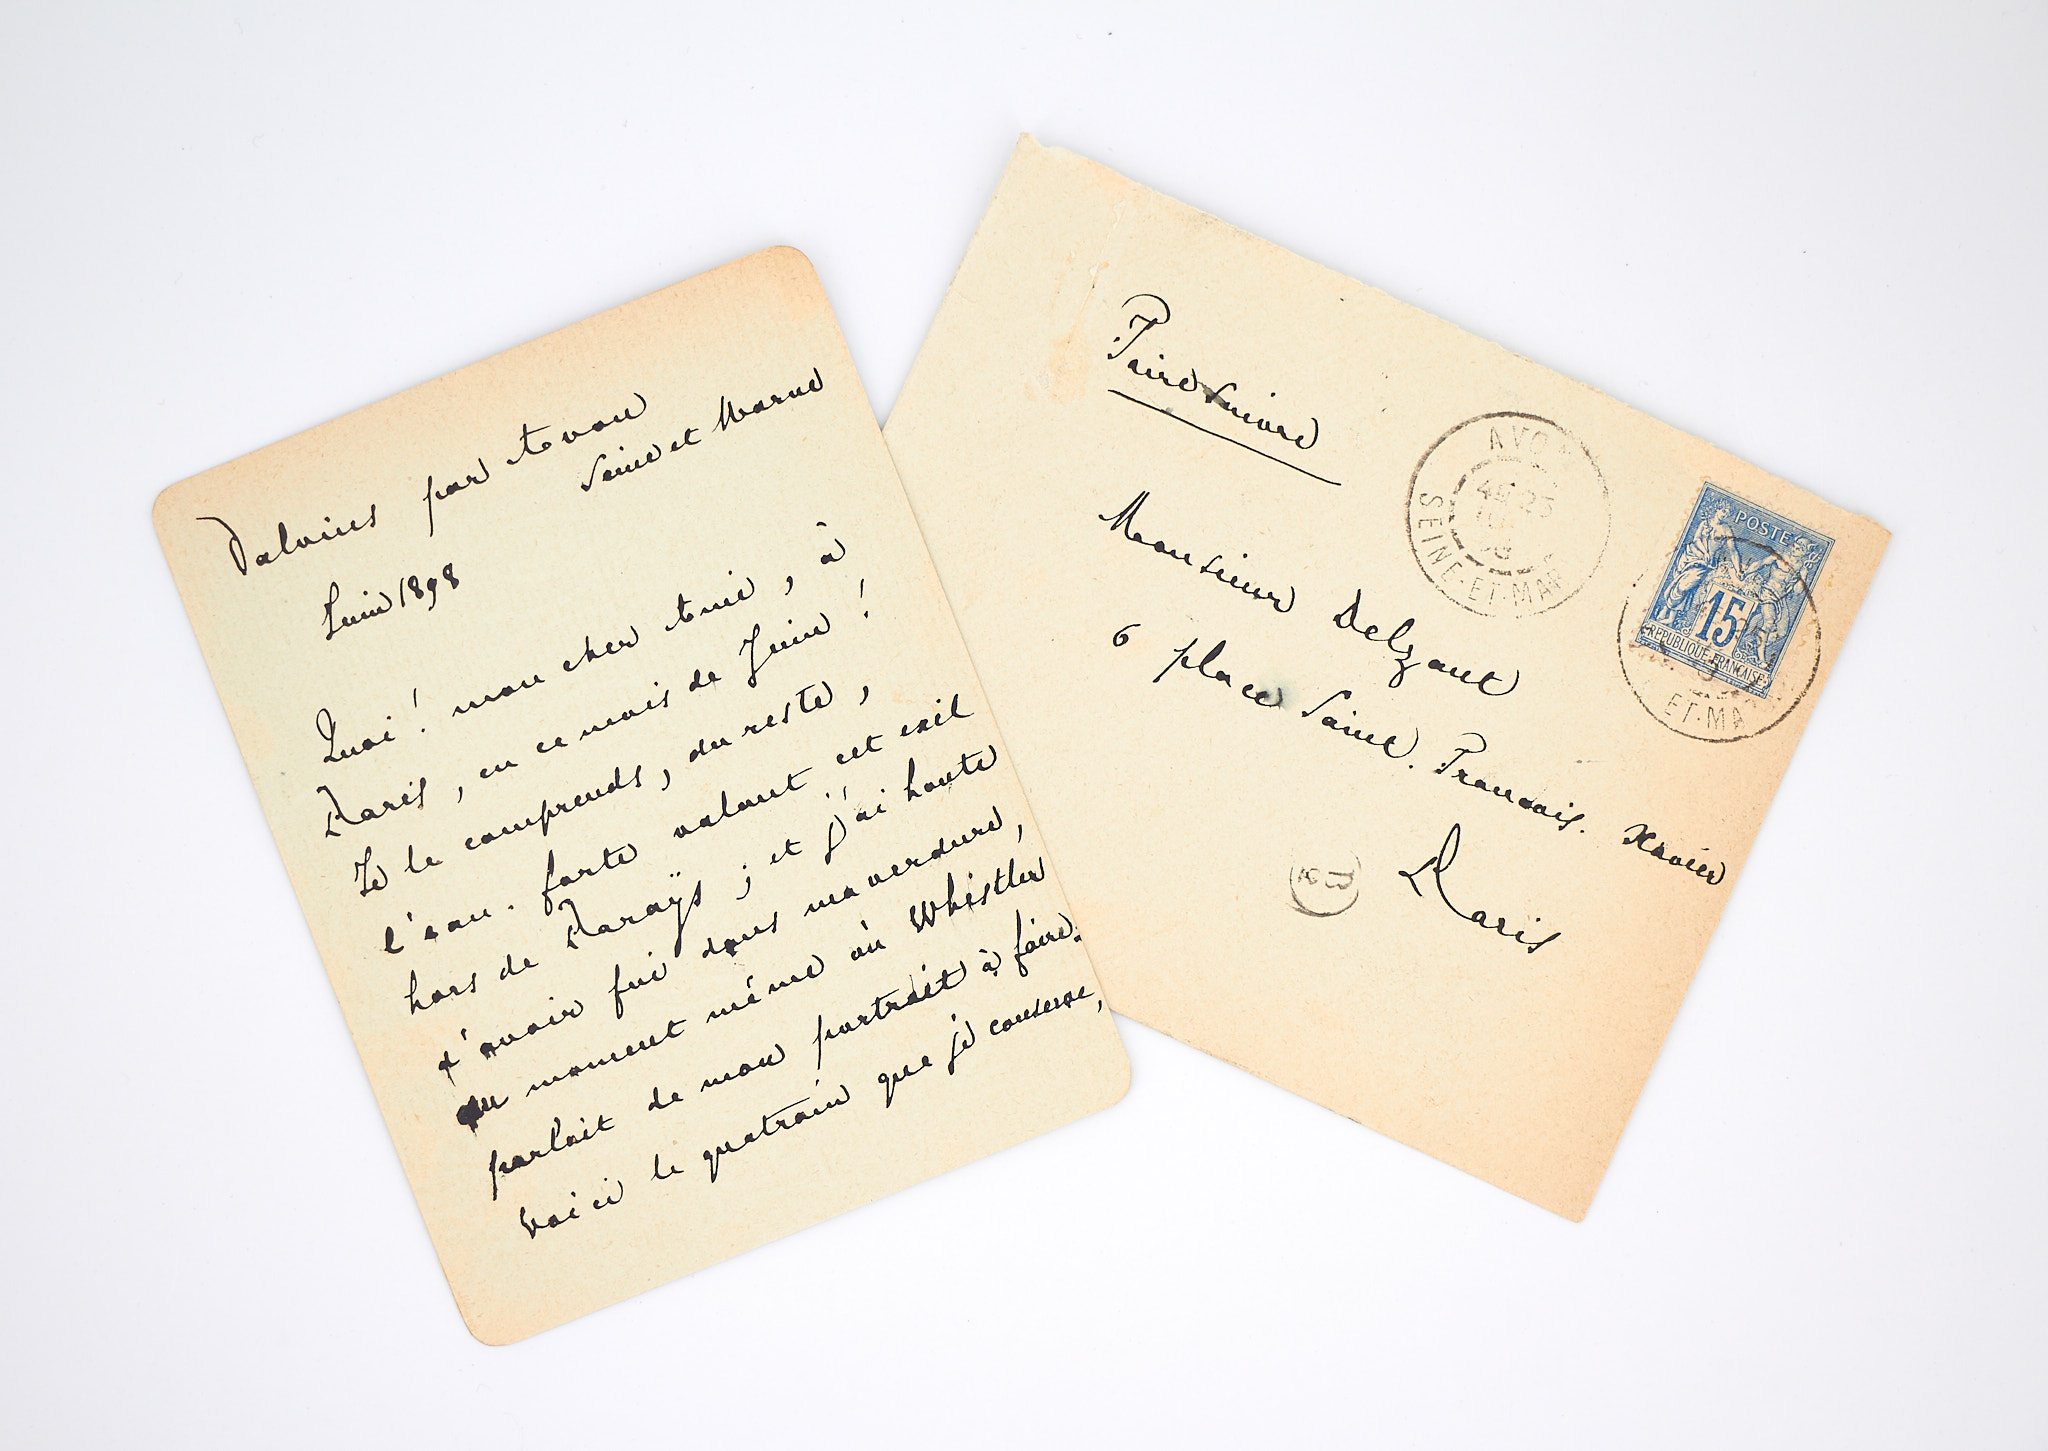 Valvins par Avon
Seine et Marne
Juin 1898
Quoi! mon cher Ami, à
Paris, en ce mois de Juin!
Je le comprends, du reste,
l'eau-forte valant cet exil
hors de Parays; et j'ai honte
d'avoir fui dans ma verdure,
au moment même où Whistler
parlait de mon portrait à faire.
Voici le quatrain que je conserve,
Faire suivre
Monsieur Delzant
6 place Saint-Francois-Xavier
Paris
AVON
4E 25
98
SEINE-ET-MAR
POSTES
15
REPUBLIQUE FRANCAISE
ET-MA